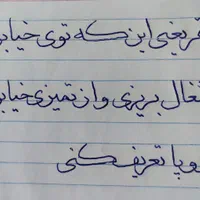 قر یعنی این که توی خیابو
شغال بریزی و از تمیزی خیابو
وپا تعریف کنی